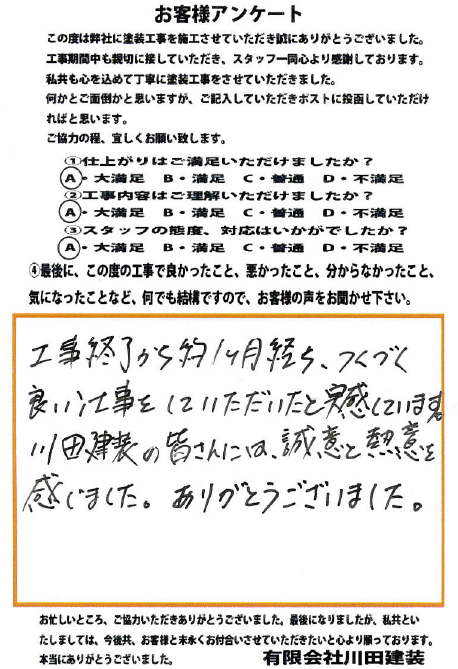 お客様アンケート
この度は弊社に塗装工事を施工させていただき誠にありがとうございました。
工事期間中も親切に接していただき、スタッフ一同心より感謝しております。
私共も心を込めて丁寧に塗装工事をさせていただきました。
何かとご面倒かと思いますが、ご記入していただきポストに投函していただけ
ればと思います。
ご協力の程、宜しくお願い致します。
①仕上がりはご満足いただけましたか？
A・大満足 B・満足 C・普通 D・不満足
②工事内容はご理解いただけましたか？
A・大満足 B・満足 C・普通 D・不満足
③スタッフの態度、対応はいかがでしたか？
A・大満足 B・満足 C・普通 D・不満足
④最後に、この度の工事で良かったこと、悪かったこと、分からなかったこと、
気になったことなど、何でも結構ですので、お客様の声をお聞かせ下さい。
工事終了から約1ヶ月経ち、つくづく
良い仕事をしていただいたと実感しています。
川田建装の皆さんには、誠意と熱意を
感じました。ありがとうございました。
お忙しいところ、ご協力いただきありがとうございました。最後になりましたが、私共とい
たしましては、今後共、お客様と末永くお付合いさせていただきたいと心より願っております。
本当にありがとうございました。 有限会社川田建装